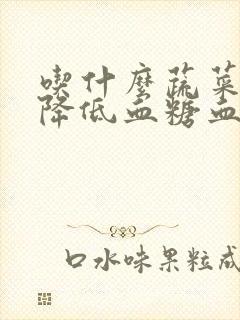 喫什麼蔬菜
降低血糖血
口水味果粒成